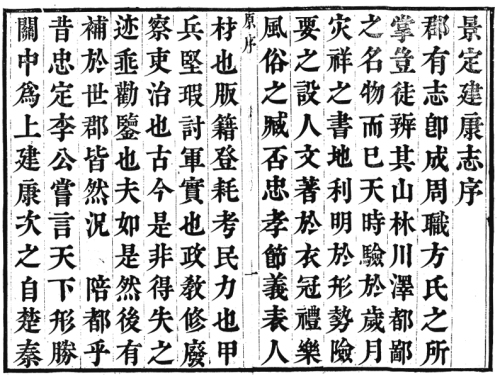 景定建康志序
郡有志卽成周職方氏之所
掌豈徒辨其山林川澤都鄙
之名物而已天時驗於歲月
灾祥之書地利明於形勢險
要之設人文著於衣冠禮樂
風俗之臧否忠孝節義表人
原序
一
材也版籍登耗考民力也甲
兵堅瑕討軍實也政敎修廢
察吏治也古今是非得失之
迹垂勸鑒也夫如是然後有
補於世郡皆然況 陪都乎
昔忠定李公嘗言天下形勝
關中爲上建康次之自楚秦